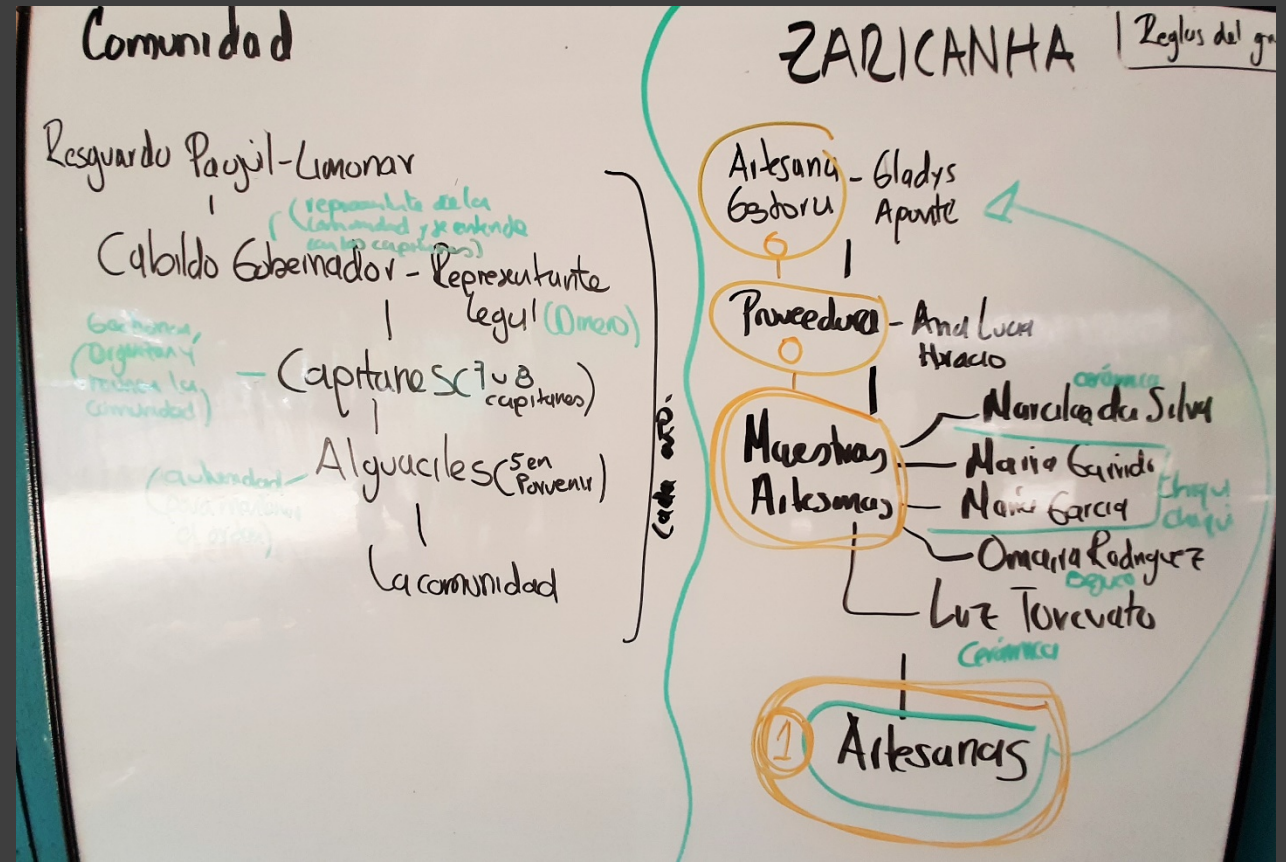 Comunidad
Resguardo Paujil-Limonar
(representante de la
comunidad y se entiende
con los capitanes)
Cabildo Gobernador - Representante
Legal (Dinero)
Gestionan,
(organizan y
la
comunidad)
- Capitanes (7 u 8
capitanes)
Alguaciles (5 en
Porvenir)
(autoridad
La comunidad
Cada año.
ZARICANHA
Reglas del
Artesana
Gestora
- Gladys
Aponte
Proveedora - Ana Lucia
Horacio
Maestras
Artesanas
cerámica
Marcela da Silva
Maria Garrido
Maria Garcia
Chiqui
chiqui
Omaira Rodriguez
Bejuco
Luz Torcuato
Cerámica
1 Artesanas